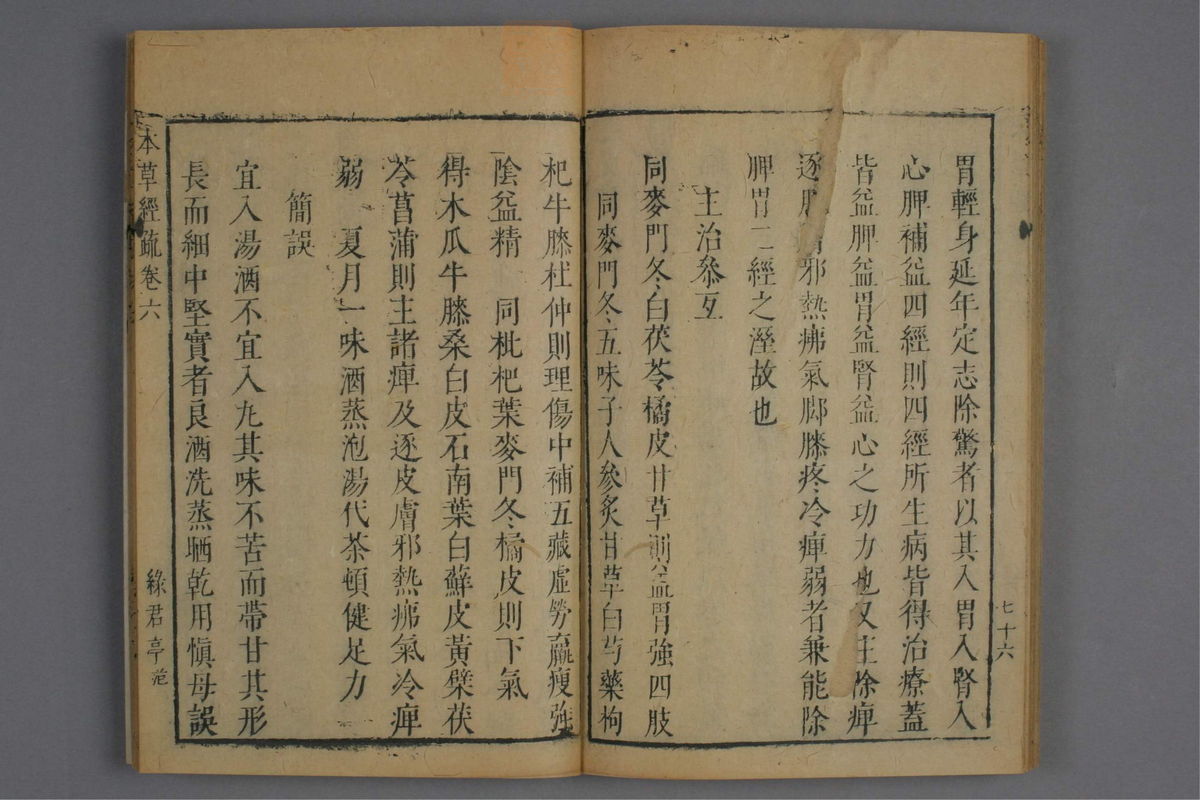 胃輕身延年定志除驚者以其入胃入腎入
心脾補益四經則四經所生病皆得治療蓋
皆益脾益胃益腎益心之功力也又主除痺
逐肌邪熱疿氣脚膝疼冷痺弱者兼能除
脾胃二經之溼故也
主治叅互
同麥門冬白茯苓橘皮甘草則益胃強四肢
同麥門冬五味子人參炙甘草白芍藥枸
杞牛膝杜仲則理傷中補五藏虛勞羸瘦強
陰益精 同枇杷葉麥門冬橘皮則下氣
得木瓜牛膝桑白皮石南葉白蘚皮黃檗茯
苓菖蒲則主諸痺及逐皮膚邪熱疿氣冷痺
弱 夏月一味酒蒸泡湯代茶頓健足力
簡誤
宜入湯酒不宜入丸其味不苦而帶甘其形
長而細中堅實者良酒洗蒸晒乾用愼毋誤
本草經疏卷六
綠君亭
七十六